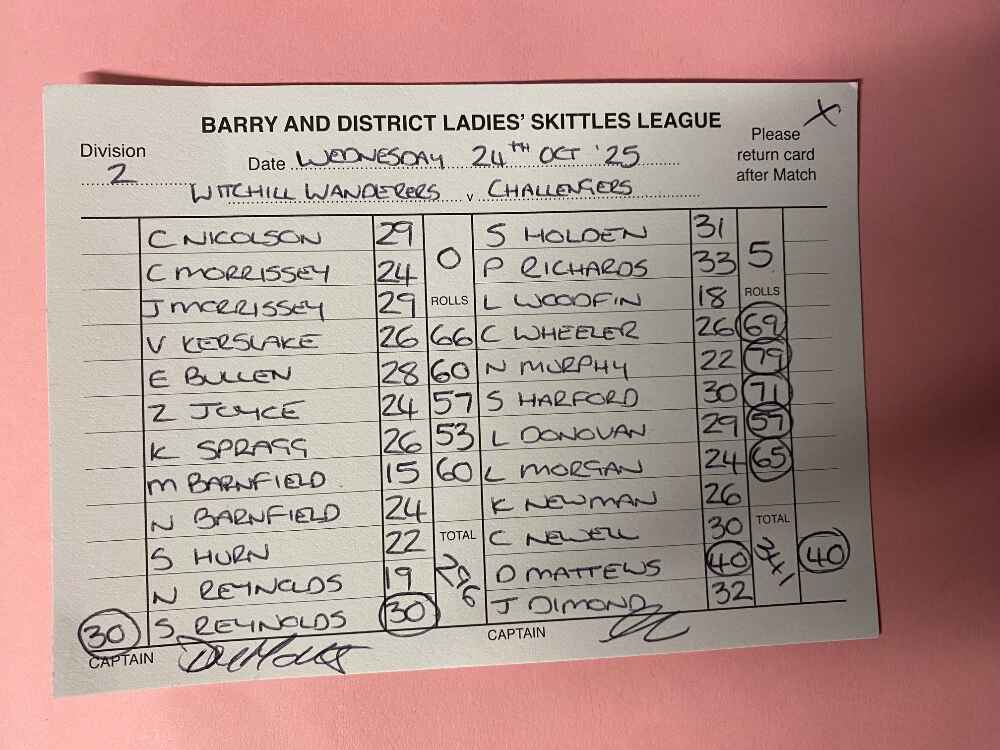 BARRY AND DISTRICT LADIES' SKITTLES LEAGUE
X
Please return card after Match
Division 2
Date WEDNESDAY 24TH OCT '25
WITCHILL WANDERERS v CHALLENGERS
C NICOLSON 29 0 S HOLDEN 31 5
C MORRISSEY 24 P RICHARDS 33
J MORRISSEY 29 ROLLS L WOODFIN 18 ROLLS
V KERSLAKE 26 66 C WHEELER 26 69
E BULLEN 28 60 N MURPHY 22 79
Z JOYCE 24 57 S HARFORD 30 71
K SPRAGG 26 53 L DONOVAN 29 57
M BARNFIELD 15 60 L MORGAN 24 65
N BARNFIELD 24 K NEWMAN 26
S HURN 22 TOTAL C NEWELL 30 TOTAL
N REYNOLDS 19 296 D MATTEWS 40 341 40
30 S REYNOLDS 30 J DIMOND 32
CAPTAIN CAPTAIN